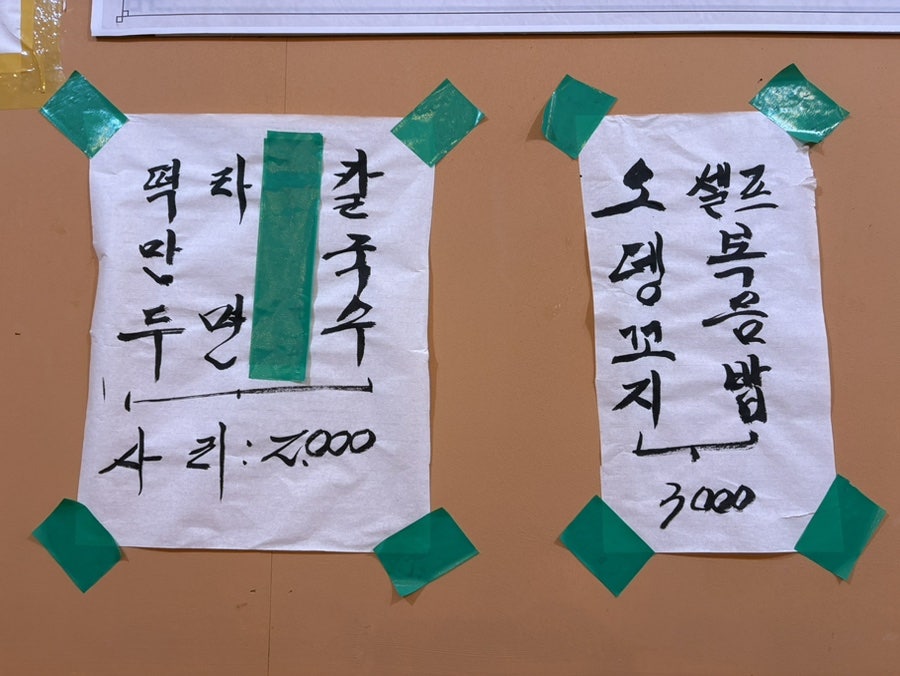 칼국수
라면
떡만두
사리: 2,000
셀프복음밥
오뎅꼬지
3000